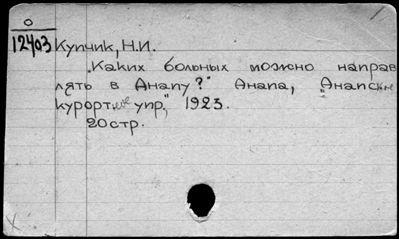 О
12403 Купчик, Н.И.
„Каких больных можно направ
лять в Анапу?" Анапа, „Анапск
курортное упр," 1923.
20 стр.